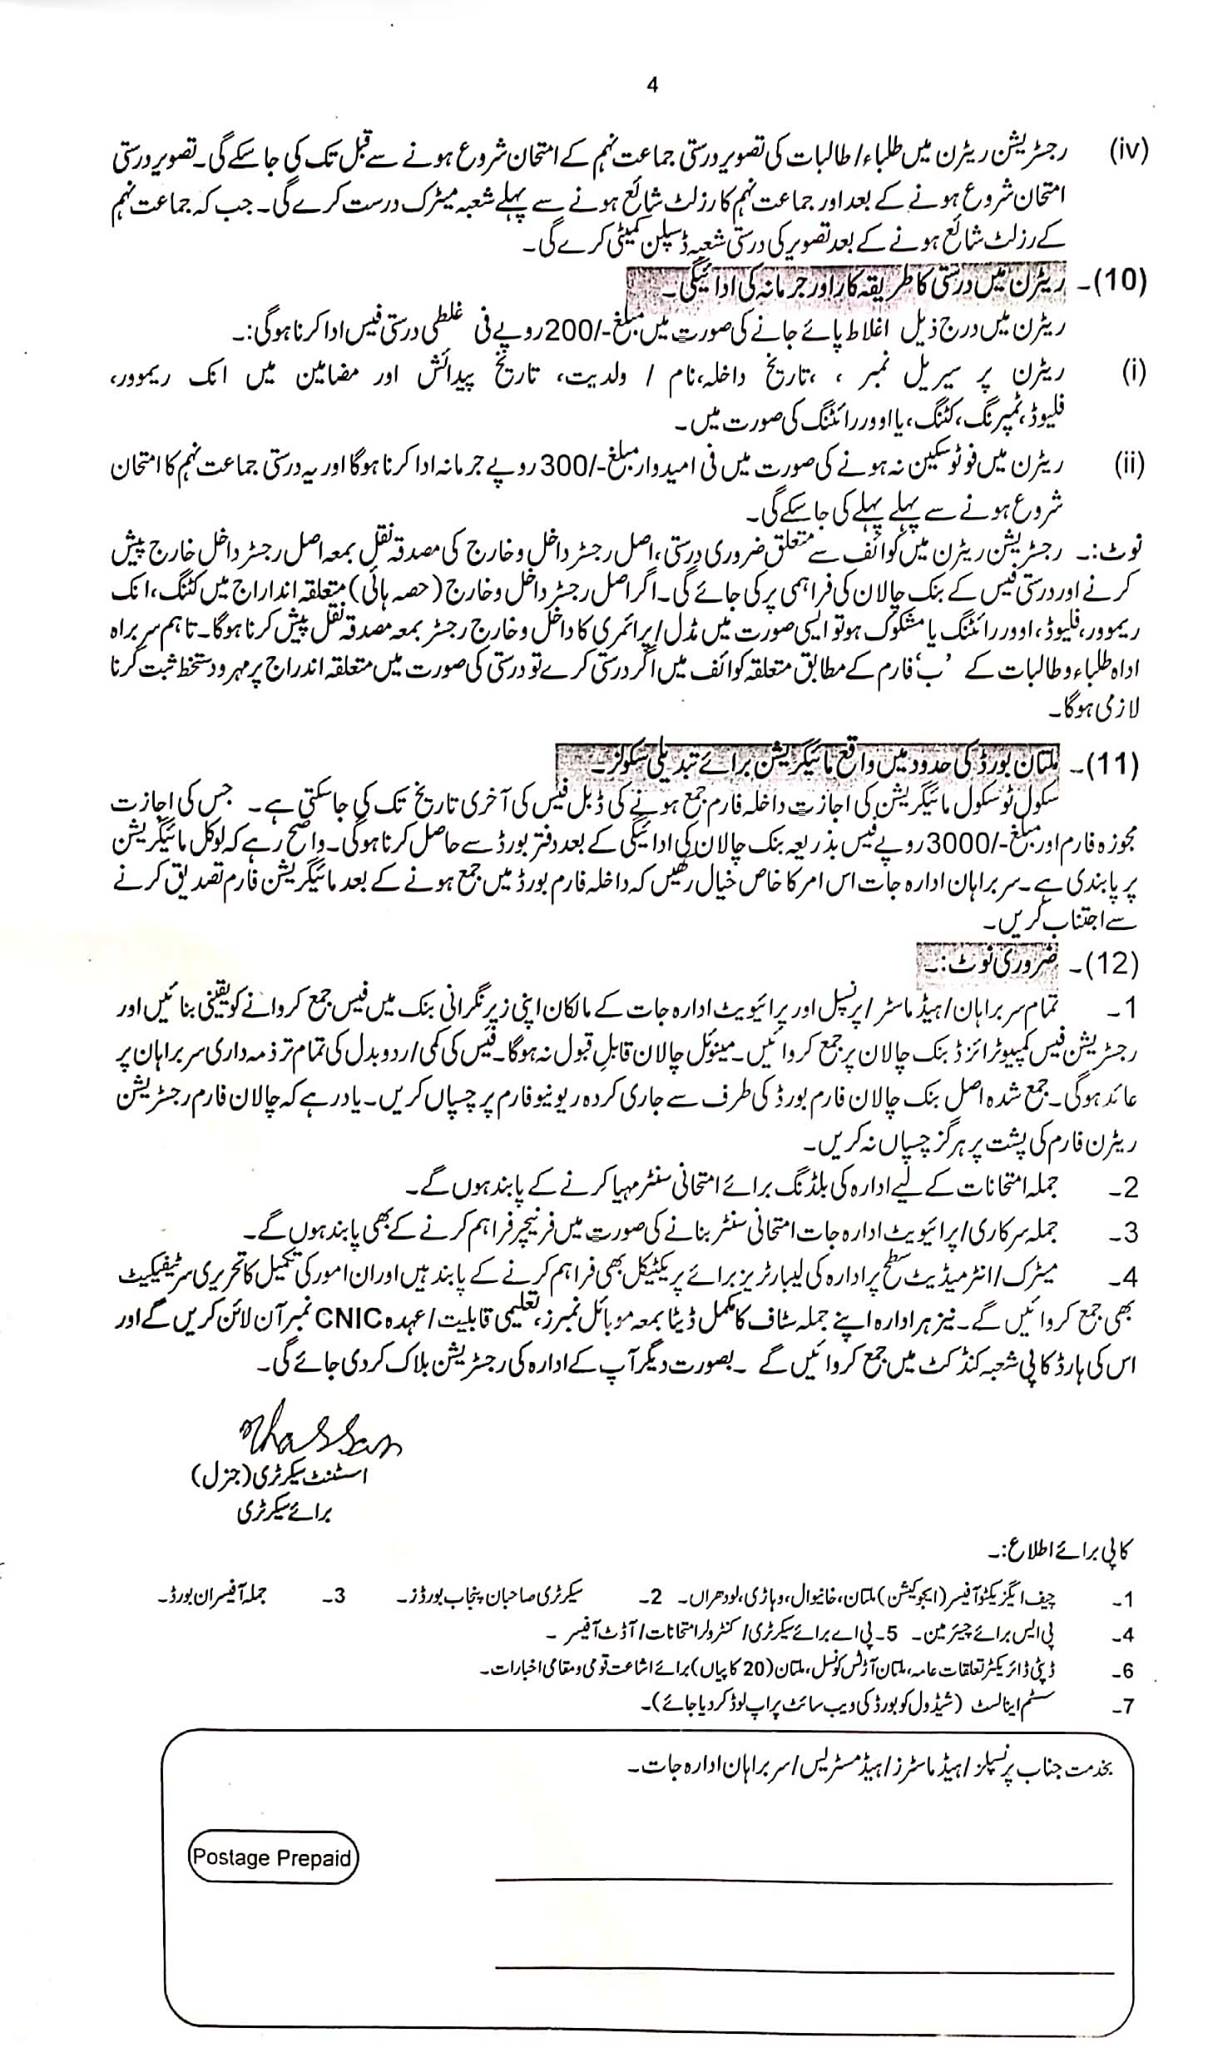 4
(iv) رجسٹریشن ریٹرن میں طلباء/طالبات کی تصویر درستی جماعت نہم کے امتحان شروع ہونے سے قبل تک کی جا سکے گی۔ تصویر درستی
امتحان شروع ہونے کے بعد اور جماعت نہم کا رزلٹ شائع ہونے سے پہلے شعبہ میٹرک درست کرے گی۔ جب کہ جماعت نہم
کے رزلٹ شائع ہونے کے بعد تصویر کی درستی شعبہ ڈسپلن کمیٹی کرے گی۔
(10)۔ ریٹرن میں درستی کا طریقہ کار اور جرمانہ کی ادائیگی۔
ریٹرن میں درج ذیل اغلاط پائے جانے کی صورت میں مبلغ -/200 روپے فی غلطی درستی فیس ادا کرنا ہوگی:۔
(i) ریٹرن پر سیریل نمبر ، ،تاریخ داخلہ،نام / ولدیت، تاریخ پیدائش اور مضامین میں انک ریموور،
فلیوڈ،ٹمپرنگ،کٹنگ،یا اوور رائٹنگ کی صورت میں۔
(ii) ریٹرن میں فوٹو سکین نہ ہونے کی صورت میں فی امیدوار مبلغ -/300 روپے جرمانہ ادا کرنا ہوگا اور یہ درستی جماعت نہم کا امتحان
شروع ہونے سے پہلے پہلے کی جا سکے گی۔
نوٹ:۔ رجسٹریشن ریٹرن میں کوائف سے متعلق ضروری درستی،اصل رجسٹر داخل و خارج کی مصدقہ نقل بمعہ اصل رجسٹر داخل خارج پیش
کرنے اور درستی فیس کے بنک چالان کی فراہمی پر کی جائے گی۔ اگر اصل رجسٹر داخل و خارج (حصہ ہائی) متعلقہ انداراج میں کٹنگ،انک
ریموور،فلیوڈ،اوور رائٹنگ یا مشکوک ہو تو ایسی صورت میں مڈل/پرائمری کا داخل و خارج رجسٹر بمعہ مصدقہ نقل پیش کرنا ہوگا۔ تاہم سربراہ
اداہ طلباء و طالبات کے ’ب‘ فارم کے مطابق متعلقہ کوائف میں اگر درستی کرے تو درستی کی صورت میں متعلقہ اندراج پر مہر و دستخط ثبت کرنا
لازمی ہوگا۔
(11)۔ ملتان بورڈ کی حدود میں واقع مائیگریشن برائے تبدیلی سکولز۔
سکول ٹو سکول مائیگریشن کی اجازت داخلہ فارم جمع ہونے کی ڈبل فیس کی آخری تاریخ تک کی جا سکتی ہے۔ جس کی اجازت
مجوزہ فارم اور مبلغ -/3000 روپے فیس بذریعہ بنک چالان کی ادائیگی کے بعد دفتر بورڈ سے حاصل کرنا ہوگی۔ واضح رہے کہ لوکل مائیگریشن
پر پابندی ہے۔ سربراہان ادارہ جات اس امر کا خاص خیال رکھیں کہ داخلہ فارم بورڈ میں جمع ہونے کے بعد مائیگریشن فارم تصدیق کرنے
سے اجتناب کریں۔
(12)۔ ضروری نوٹ:۔
1۔ تمام سربراہان/ہیڈ ماسٹر/پرنسپل اور پرائیویٹ ادارہ جات کے مالکان اپنی زیر نگرانی بنک میں فیس جمع کروانے کو یقینی بنائیں اور
رجسٹریشن فیس کمپیوٹرائزڈ بنک چالان پر جمع کروائیں۔ مینوئل چالان قابلِ قبول نہ ہوگا۔ فیس کی کمی/ردوبدل کی تمام تر ذمہ داری سربراہان پر
عائد ہوگی۔ جمع شدہ اصل بنک چالان فارم بورڈ کی طرف سے جاری کردہ ریونیو فارم پر چسپاں کریں۔ یاد رہے کہ چالان فارم رجسٹریشن
ریٹرن فارم کی پشت پر ہرگز چسپاں نہ کریں۔
2۔ جملہ امتحانات کے لیے ادارہ کی بلڈنگ برائے امتحانی سنٹر مہیا کرنے کے پابند ہوں گے۔
3۔ جملہ سرکاری/پرائیویٹ ادارہ جات امتحانی سنٹر بنانے کی صورت میں فرنیچر فراہم کرنے کے بھی پابند ہوں گے۔
4۔ میٹرک/انٹرمیڈیٹ سطح پر ادارہ کی لیبارٹریز برائے پریکٹیکل بھی فراہم کرنے کے پابند ہیں اور ان امور کی تکمیل کا تحریری سرٹیفیکیٹ
بھی جمع کروائیں گے۔ نیز ہر ادارہ اپنے جملہ سٹاف کا مکمل ڈیٹا بمعہ موبائل نمبرز، تعلیمی قابلیت/عہدہ CNIC نمبر آن لائن کریں گے اور
اس کی ہارڈ کاپی شعبہ کنڈکٹ میں جمع کروائیں گے ۔ بصورت دیگر آپ کے ادارہ کی رجسٹریشن بلاک کر دی جائے گی۔
اسسٹنٹ سیکرٹری (جنرل)
برائے سیکرٹری
کاپی برائے اطلاع:۔
1۔ چیف ایگزیکٹو آفیسر (ایجوکیشن) ملتان، خانیوال، وہاڑی، لودھراں۔ 2۔ سیکرٹری صاحبان پنجاب بورڈز۔ 3۔ جملہ آفیسران بورڈ۔
4۔ پی ایس برائے چیئرمین۔ 5۔ پی اے برائے سیکرٹری/کنٹرولر امتحانات/آڈٹ آفیسر ۔
6۔ ڈپٹی ڈائریکٹر تعلقات عامہ، ملتان آرٹس کونسل، ملتان (20 کاپیاں) برائے اشاعت قومی و مقامی اخبارات۔
7۔ سسٹم اینالسٹ (شیڈول کو بورڈ کی ویب سائٹ پر اپ لوڈ کر دیا جائے)۔
بخدمت جناب پرنسپلز/ہیڈ ماسٹرز/ہیڈ مسٹریس/سربراہان ادارہ جات۔
Postage Prepaid